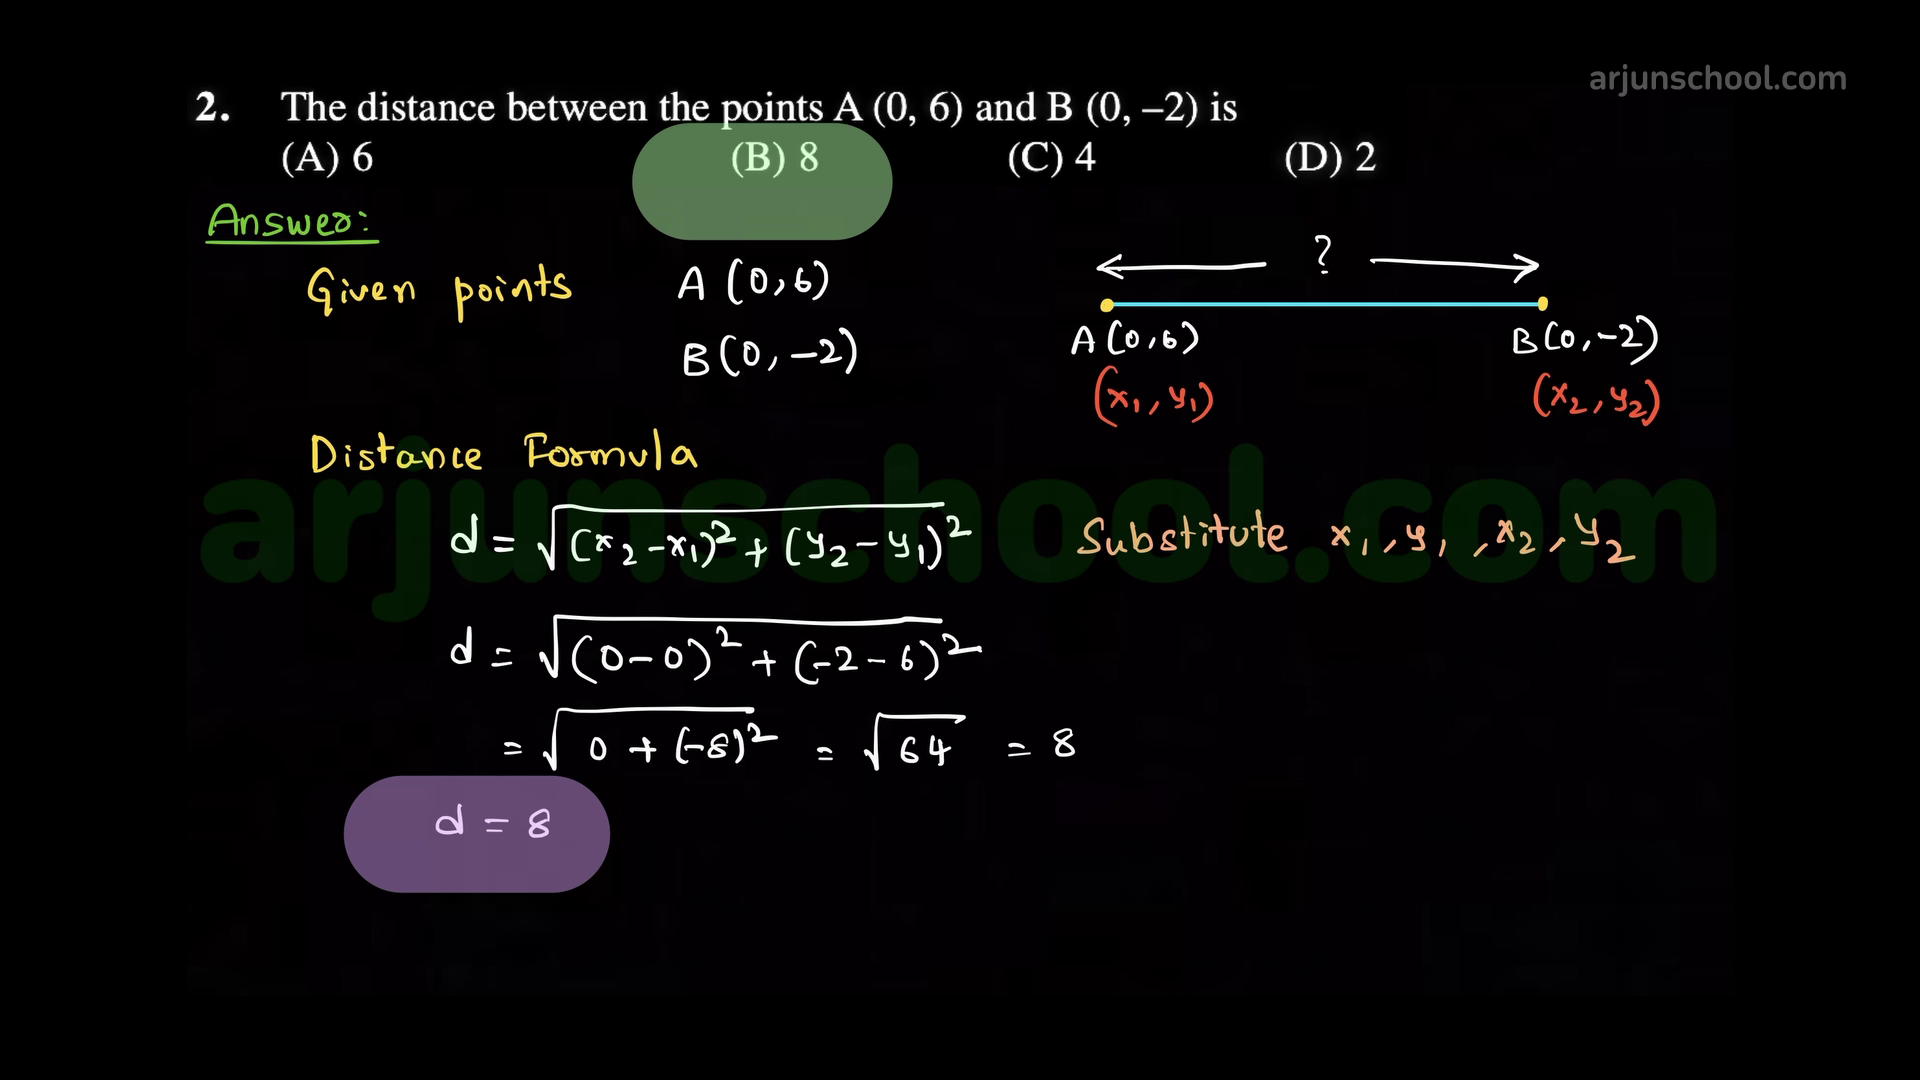 arjunschool.com
2. The distance between the points A (0, 6) and B (0, –2) is
(A) 6 (B) 8 (C) 4 (D) 2
Answer:
?
Given points A (0,6)
B(0,-2)
A(0,6) B(0,-2)
(x₁, y₁) (x₂, y₂)
Distance Formula
arjunschool.com
d = √((x₂-x₁)² + (y₂-y₁)²) Substitute x₁, y₁, x₂, y₂
d = √((0-0)² + (-2-6)²)
= √(0 + (-8)²) = √64 = 8
d = 8